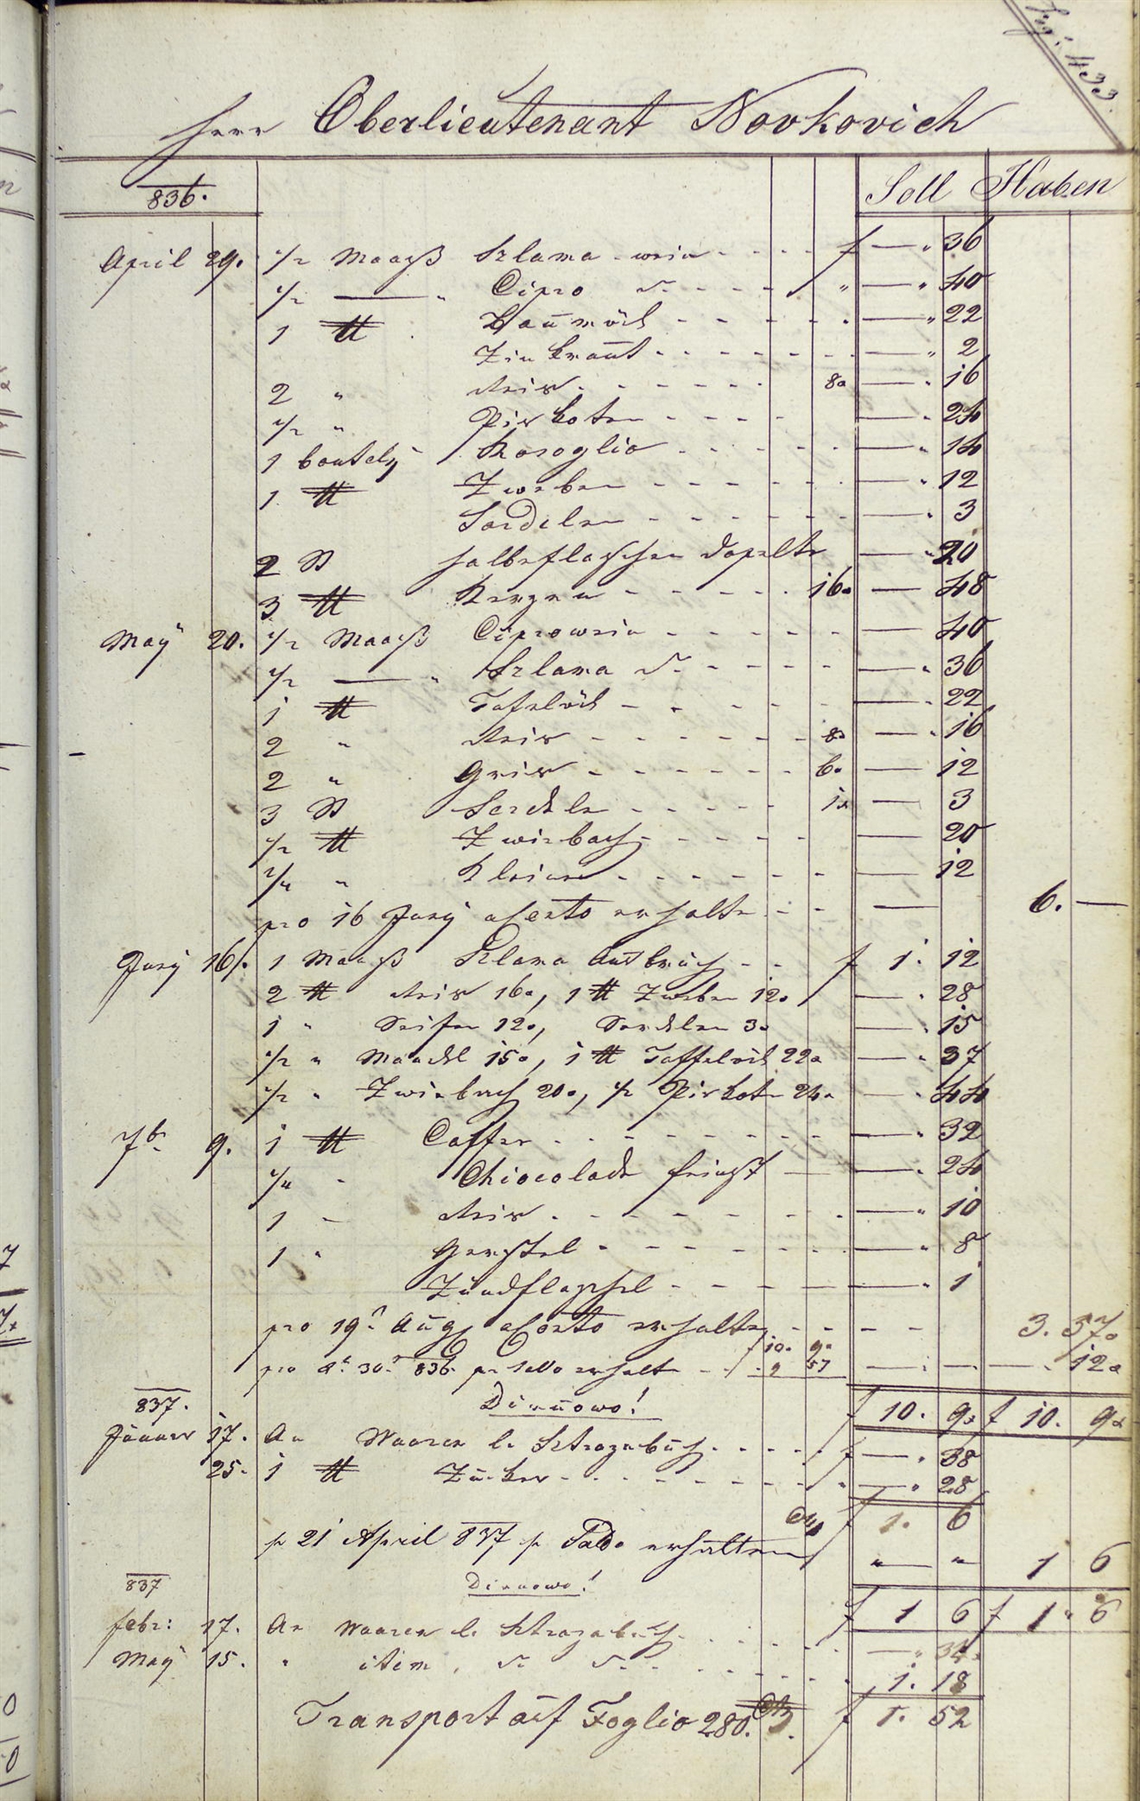 433
Herr Oberlieutenant Novkovich
836.
Soll Haben
April 29. 1/2 Maaß Szlama-wein - - - f — " 36
1/2 — " Cipro d° - - - " — " 40
1 ℔ Baumöhl - - - - — " 22
Zinkraut - - - - — " 2
2 " Reis - - - - 8x — " 16
1/2 " Piskoten - - - — " 24
1 bouteln Rosoglio - - - — " 14
1 ℔ Zweben - - - - — " 12
Sardelen - - - - — " 3
2 St halbeflaschen dopelte — " 20
3 ℔ Kerzen - - - - 16x — 48
May 20. 1/2 Maaß Ciprowein - - - - — 40
1/2 — " Szlama d° - - - — " 36
1 ℔ Tafelöhl - - - - — " 22
2 " Reis - - - - 8x — " 16
2 " Gries - - - - 6x — 12
3 St Sardeln - - - - 1x — 3
1/2 ℔ Zwieback - - - - — 20
1/4 " Kleine - - - - — 12
pro 16 Juny aConto erhalte - - — 6. —
Juny 16. 1 Maaß Szlama Ausbruch - - f 1. 12
2 ℔ Reis 16x, 1 ℔ Zweben 12x — " 28
1 " Seifen 12x, Sardelen 3x — " 15
1/2 " Mandel 15x, 1 ℔ Taffelöhl 22x — " 37
1/2 " Zwieback 20x, 1/2 Piskote 24x — " 44
7br 9. 1 ℔ Caffee - - - - — " 32
1/4 " Chiocolade feinst — — " 24
1 " Reis - - - - — " 10
1 " Gerstel - - - - — " 8
Zündflaschel - - - — " 1
pro 19 Aug aConto erhalte - - - - 3. 57x
10. 9x
pro 30 836 pr Saldo erhalt - - 9 57 — — — 12x
837. Dinnowo! f 10. 9x f 10. 9x
Jänner 17. An Waaren l. Strazabuch - - - f — " 38
25. 1 ℔ Zucker - - - - " — " 28
f 1. 6
pr 21 April 837 pr Saldo erhalten " — " 1 6
837 Dinnowo! f 1 6 f 1 " 6
Febr: 17. An Waaren l. Strazabuch - - - — " 34
May 15. " item, d° d° - - - 1. 18
Transport auf Foglio 280. f 1. 52